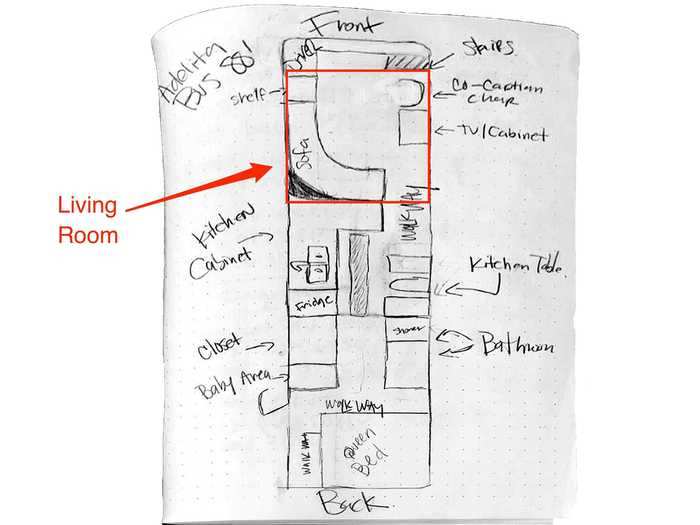 Front
Driver
Stairs
Adelita
Bus 88'
shelf
Co-Captian
Chair
TV/Cabinet
Sofa
Living
Room
Walk WAy
Kitchen
Cabinet
Kitchen Table
Fridge
Closet
Shower
Bathroom
Baby Area
Walk WAy
Walk WAy
Queen
Bed
Back